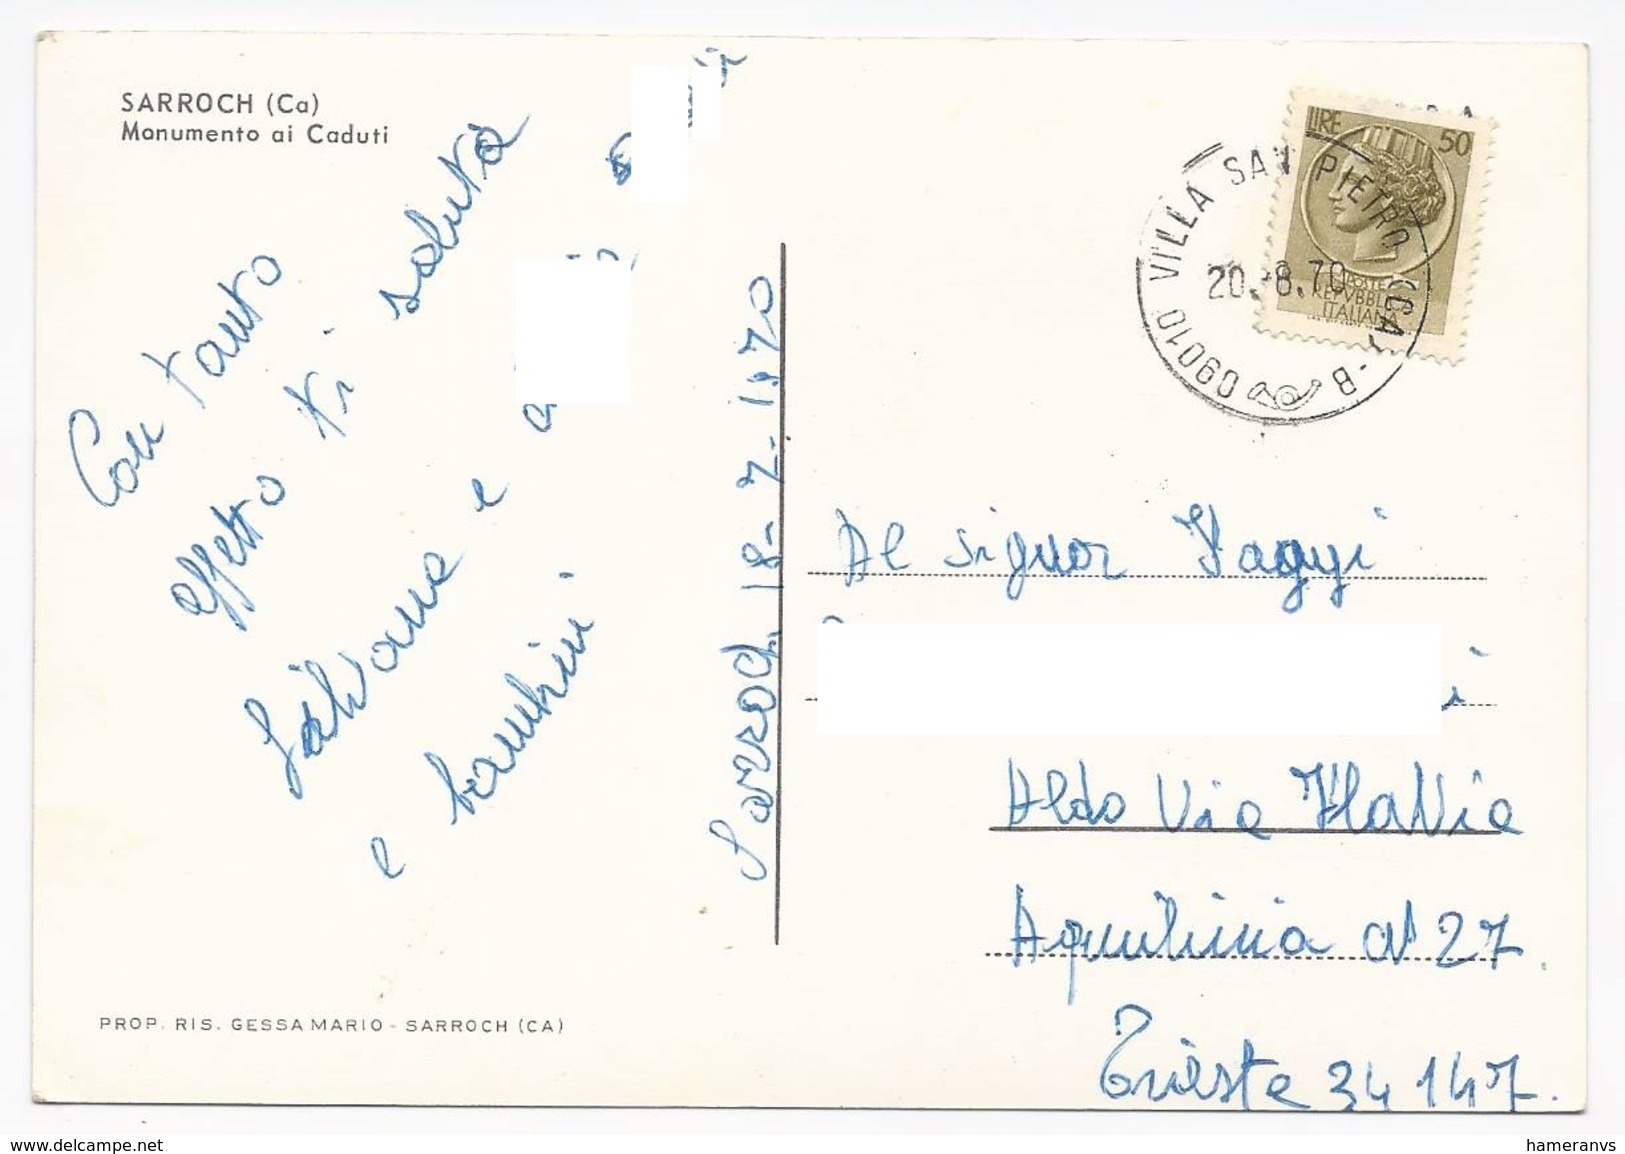 SARROCH (Ca)
Monumento ai Caduti
Con tanto
affetto ti saluta
Silvana e
e bambini
Sarroch 18-7-1970
PROP. RIS. GESSA MARIO - SARROCH (CA)
LIRE 50
POSTE
REPVBBLICA
ITALIANA
09010 VILLA SAN PIETRO (CA) - B
20.-8.70
Al Signor
Aldo Via Flavia
Aquilinia N 27.
Trieste 34147.
www.delcampe.net
hameranvs